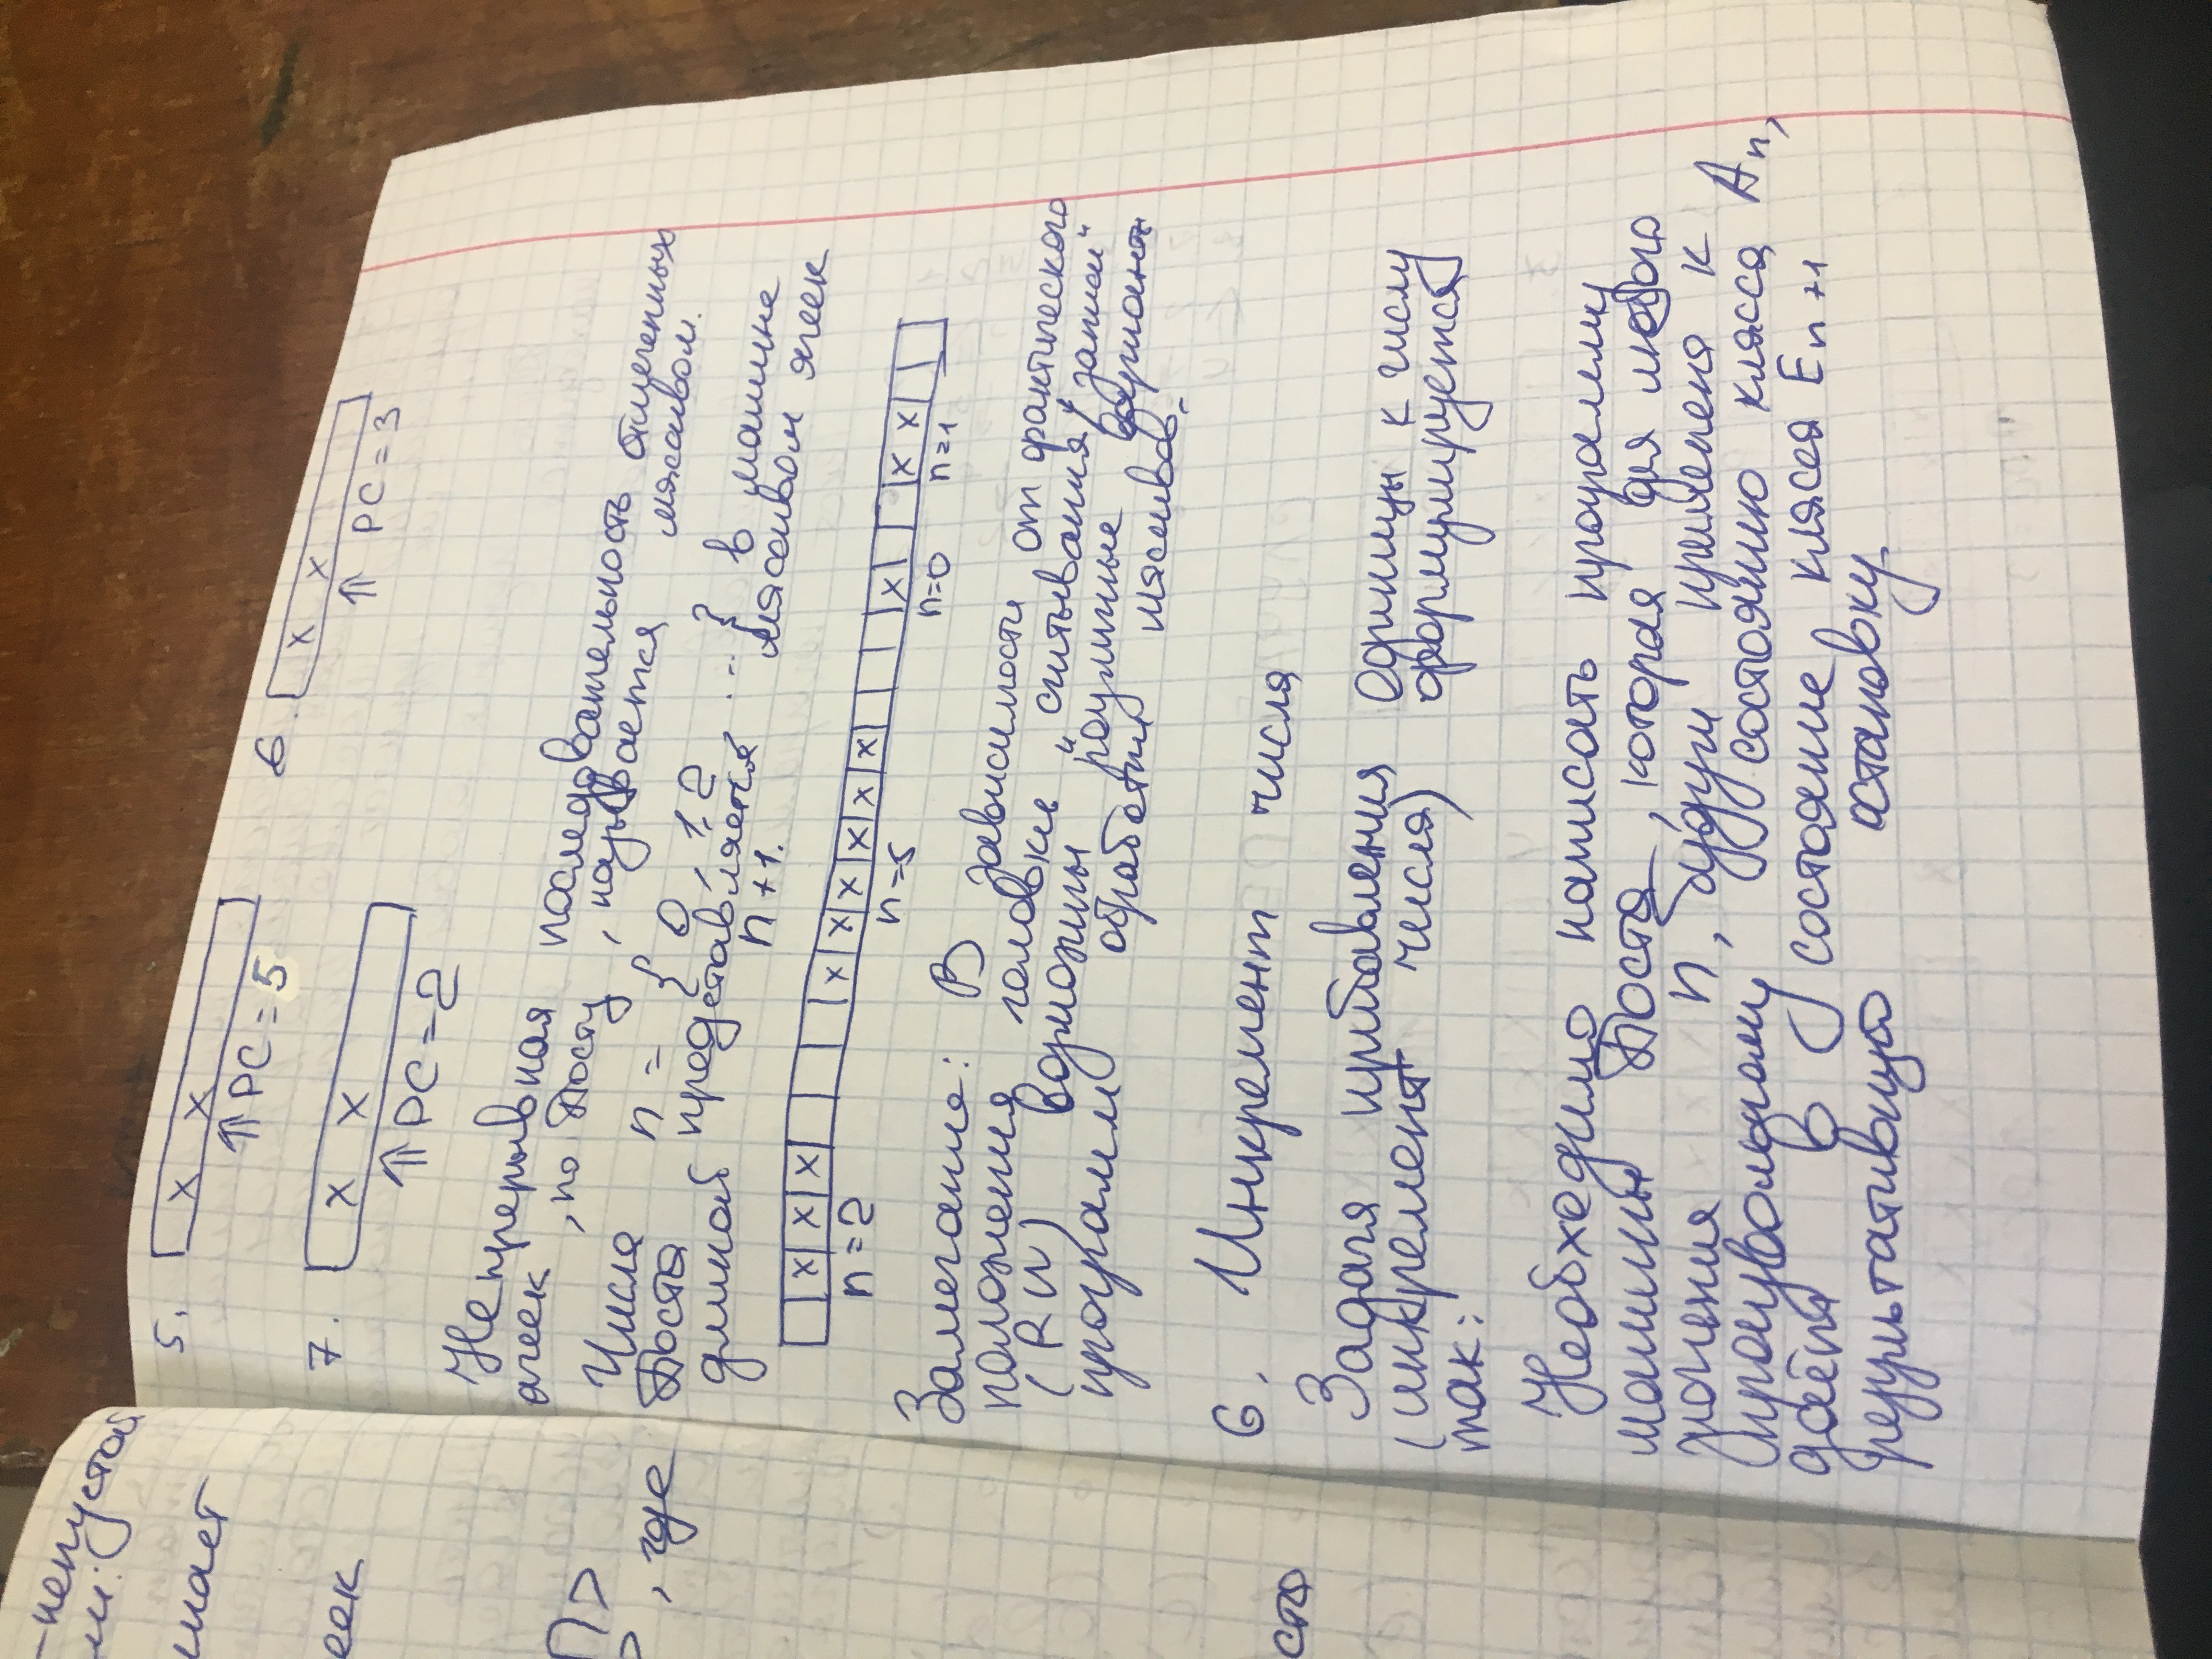 -непустой
ми:
мает
еек
П>
, где
сто
5. x x
⇑ PC = 5
6. x x
⇑ PC = 3
7. x x
⇑ PC = 2
Непрерывная последовательность отмеченных
ячеек, по Посту, называется массивом.
Числа n = { 0, 1, 2, ... } в машине
Поста представляется массивом ячеек
длиной n+1.
x x x x x x x x x x x x
n=2 n=5 n=0 n=1
Замечание: В зависимости от фактического
положения головки „считывания/записи"
(RW) возможны различные вариант
программ обработки массивов.
6. Инкремент числа
Задача прибавления единицы к числу
(инкремент числа) формулируется
так:
Необходимо написать программу
машины Поста, которая для любого
значения n, будучи применена к
произвольному состоянию класса Aₙ,
даёт в состояние класса Eₙ₊₁
результативную остановку